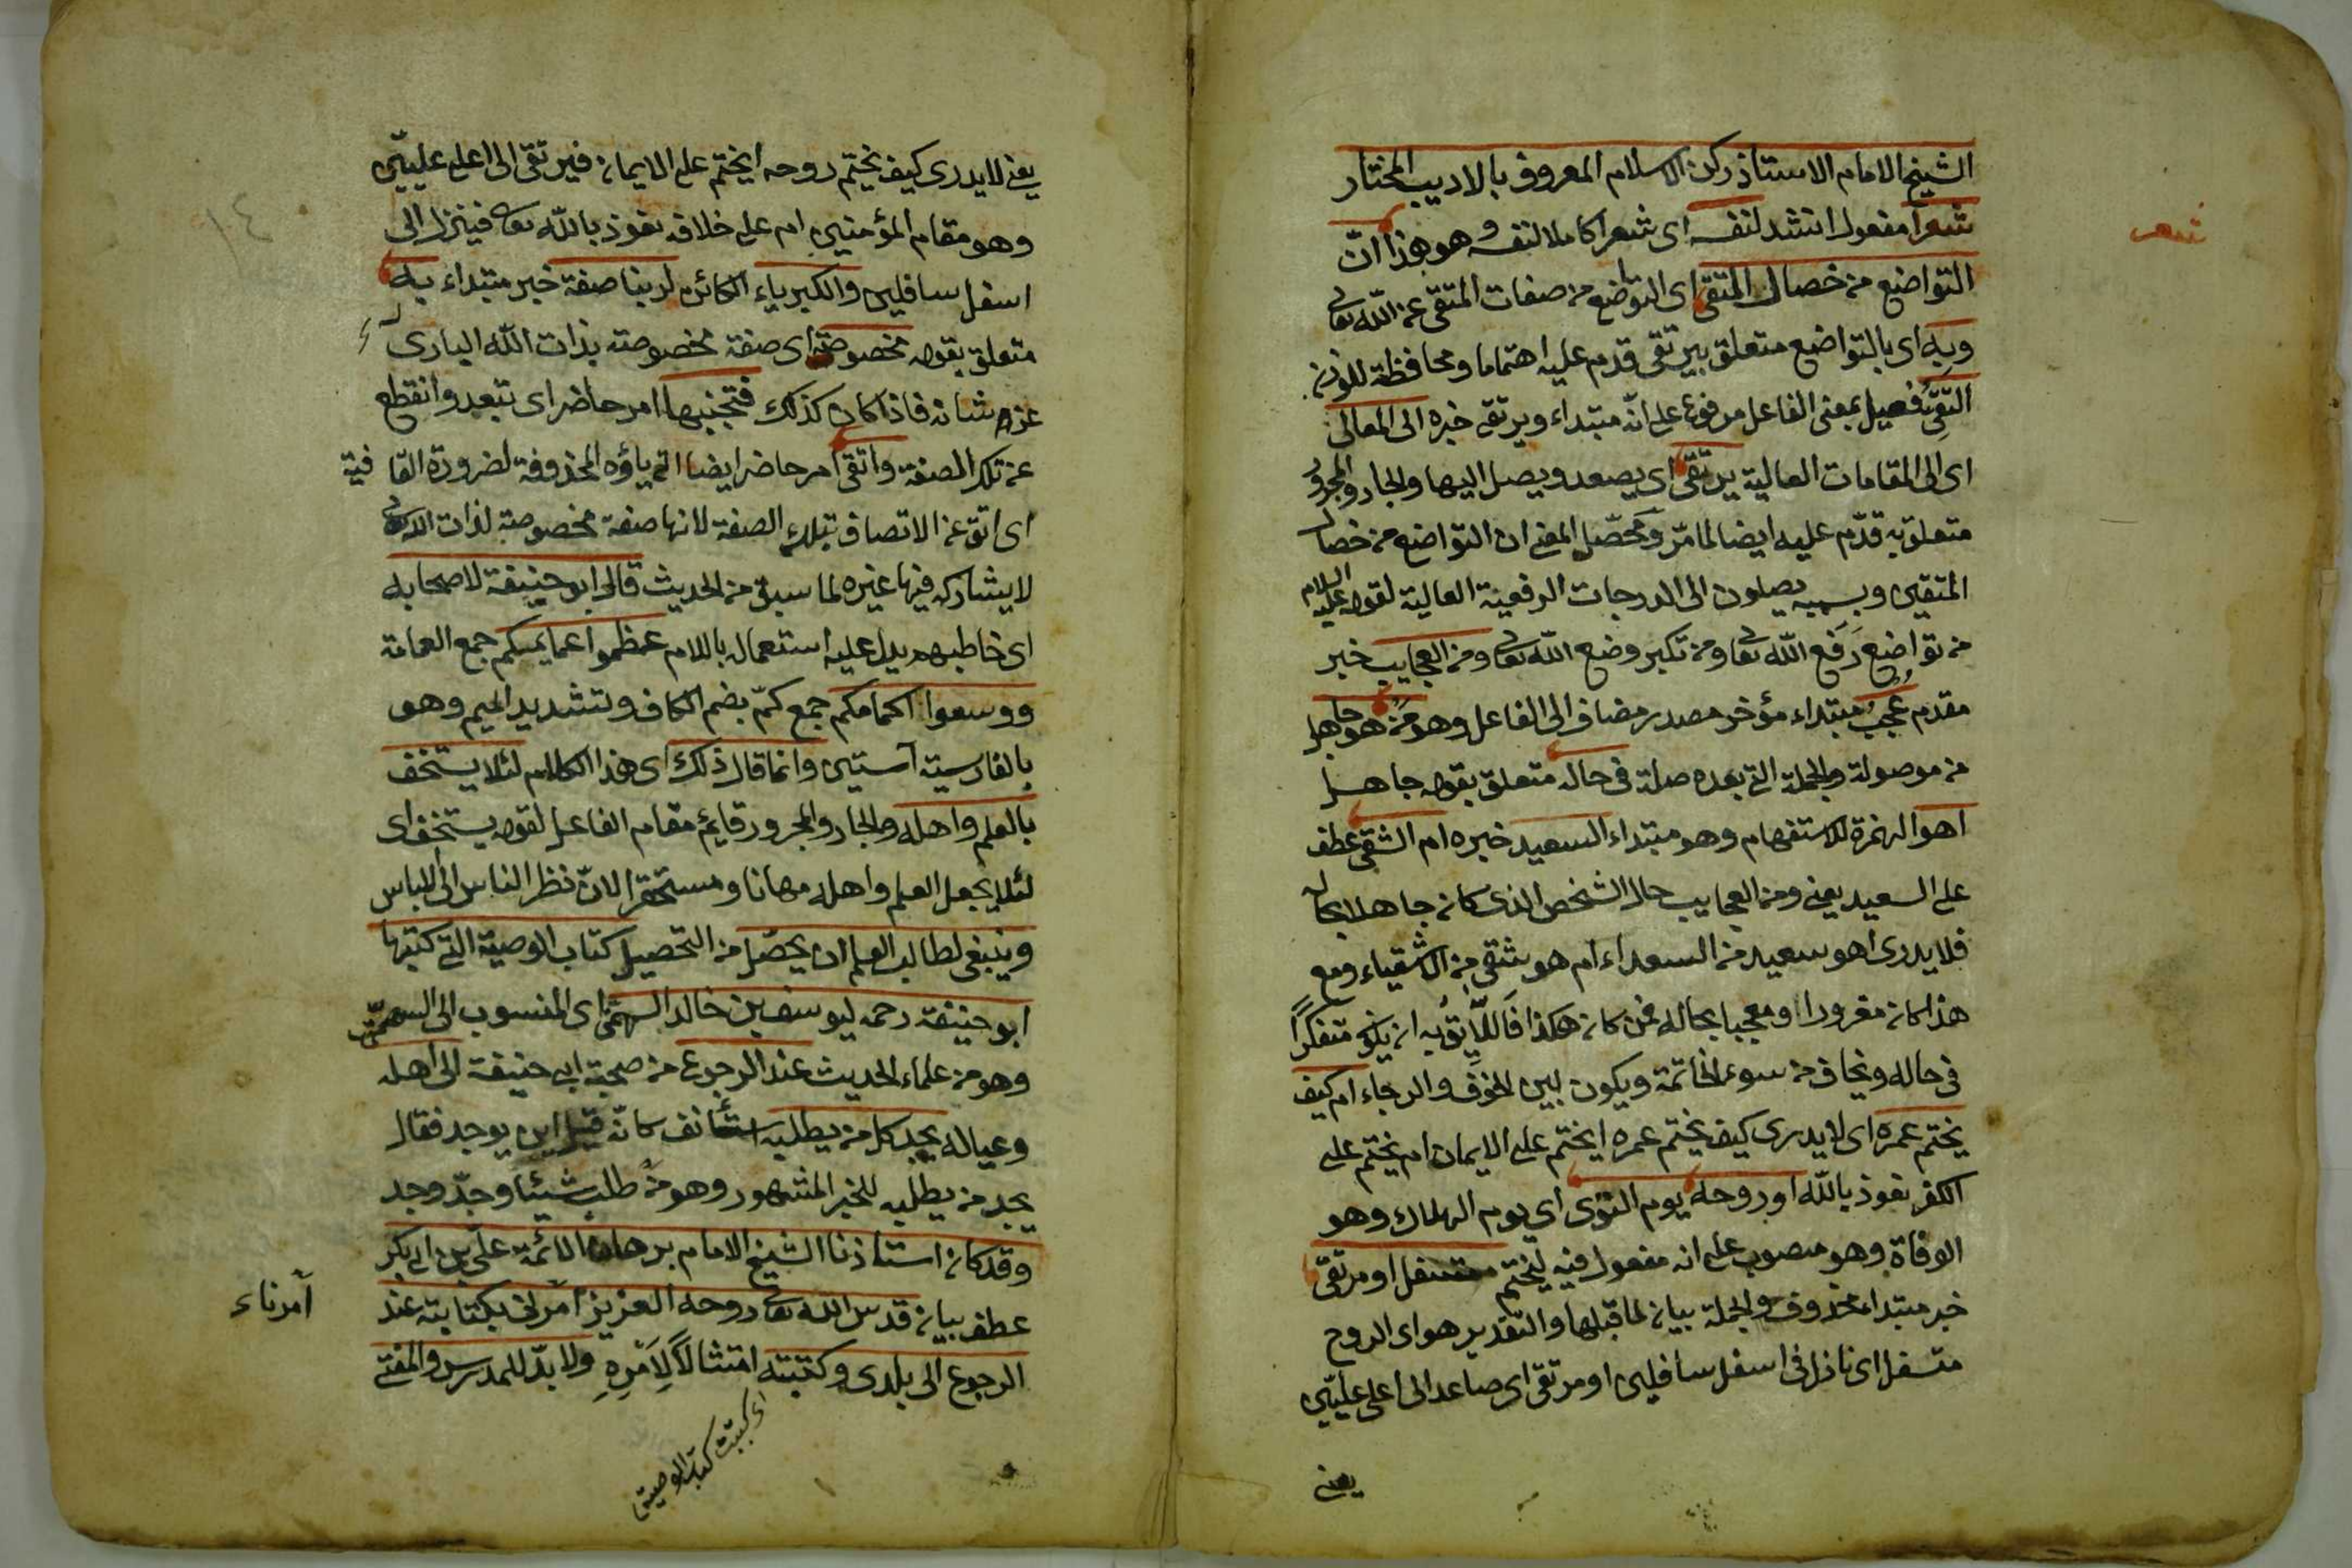 الشيخ الامام الاستاذ ركن الاسلام المعروف بالاديب المختار
شعرا مفعول انشد لنفسه اى شعرا كاملا لنفسه وهو هذا انّ
شعر
التواضع من خصال المتقى اى التواضع من صفات المتقى عن الله تعالى
وبه اى بالتواضع متعلق بيرتقى قدم عليه اهتماما ومحافظة للوزن
التّقِىُّ فعيل بمعنى الفاعل مرفوع على انّه مبتداء ويرتقى خبره الى المعالى
اى الى المقامات العالية يرتقى اى يصعد ويصل اليها والجار والمجرور
متعلق به قدّم عليه ايضا لما مرّ ومحصّل المعنى ان التواضع من خصال
المتقين وبسببه يصلون الى الدرجات الرفعية العالية لقوله عليه السلام
من تواضع رَفع الله تعا ومن تكبر وضع الله تعا ومن العجايب خبر
مقدم عُجبُ مبتداء مؤخر مصدر مضاف الى الفاعل وهو مَنْ هو جاهل
من موصولة والجملة التى بعده صلة فى حاله متعلق بقوله جاهل
اهو الهمزة للاستفهام وهو مبتداء السعيد خبره ام الشقى عطف
على السعيد يعنى ومن العجايب حال الشخص الذى كان جاهلا بحاله
فلا يدرى اهو سعيد من السعداء ام هو شقى من الاشقياء ومع
هذا كان مغرورا ومعجبا بحاله فمن كان هكذا فَاللَّايِقُ به ان يكون متفكراً
فى حاله ويخاف من سوء الخاتمة ويكون بين الخوف والرجاء ام كيف
يختم عمره اى لا يدرى كيف يختم عمره ايختم على الايمان ام يختم على
الكفر نعوذ بالله او روحه يوم النّوى اى يوم الهلاك وهو
الوفاة وهو منصوب على انه مفعول فيه ليختم متسفل او مرتقى
خبر مبتداء محذوف والجملة بيان لما قبلها والتقدير هو اى الروح
متسفل اى نازل فى اسفل سافلين او مرتقى اى صاعد الى اعلى عليّين
يعنى
يعنى لا يدرى كيف يختم روحه ايختم على الايمان فيرتقى الى اعلى عليّين
وهو مقام المؤمنين ام على خلافه نعوذ بالله تعا فينزل الى
١٤
اسفل سافلين والكبرياء الكائن لربنا صفة خبر مبتداء به
متعلق بقوله مخصوصة اى صفة مخصوصة بذات الله البارى
عزّ شانه فاذا كان كذلك فتجنبها امر حاضر اى تبعد وانقطع
عن تلك الصفة واتقى امر حاضر ايضا اتى ياؤه المحذوفة لضرورة القافية
اى اتق عن الاتصاف بتلك الصفة لانها صفة مخصوصة لذات الله تعالى
لا يشاركه فيها غيره لما سبق من الحديث قال ابو حنيفة لاصحابه
اى خاطبهم يدل عليه استعمال باللام عظموا عمايمكم جمع العمامة
ووسعوا اكمامكم جمع كمّ بضم الكاف وتشديد الميم وهو
بالفارسية آستين وانما قال ذلك اى هذا الكلام لئلا يستخف
بالعلم واهله والجار والمجرور قايم مقام الفاعل لقوله يستخف اى
لئلا يجعل العلم واهله مهانا ومستحقرا لانّ نظر الناس الى اللباس
وينبغى لطالب العلم ان يحصّل من التحصيل كتاب الوصية التى كتبها
ابو حنيفة رحمه ليوسف بن خالد السهمتى اى المنسوب الى السهمتى
وهو من علماء الحديث عند الرجوع من صحبة ابى حنيفة الى اهله
وعياله يجد كل من يطلبه استأنف كانّه قيل اين يوجد فقال
يجد من يطلبه للخبر المشهور وهو من طلب شيئا وجدّ وجد
وقد كان استاذنا الشيخ الامام برهان الائمة علىّ بن ابى بكر
عطف بيان قدس الله تعا روحه العزيز امرنى بكتابته عند
آمرناء
الرجوع الى بلدى وكتبته امتثالاً لِاَمْرِهِ ولا بدّ للمدرس والمفتى
اى كتبت كتاب الوصية